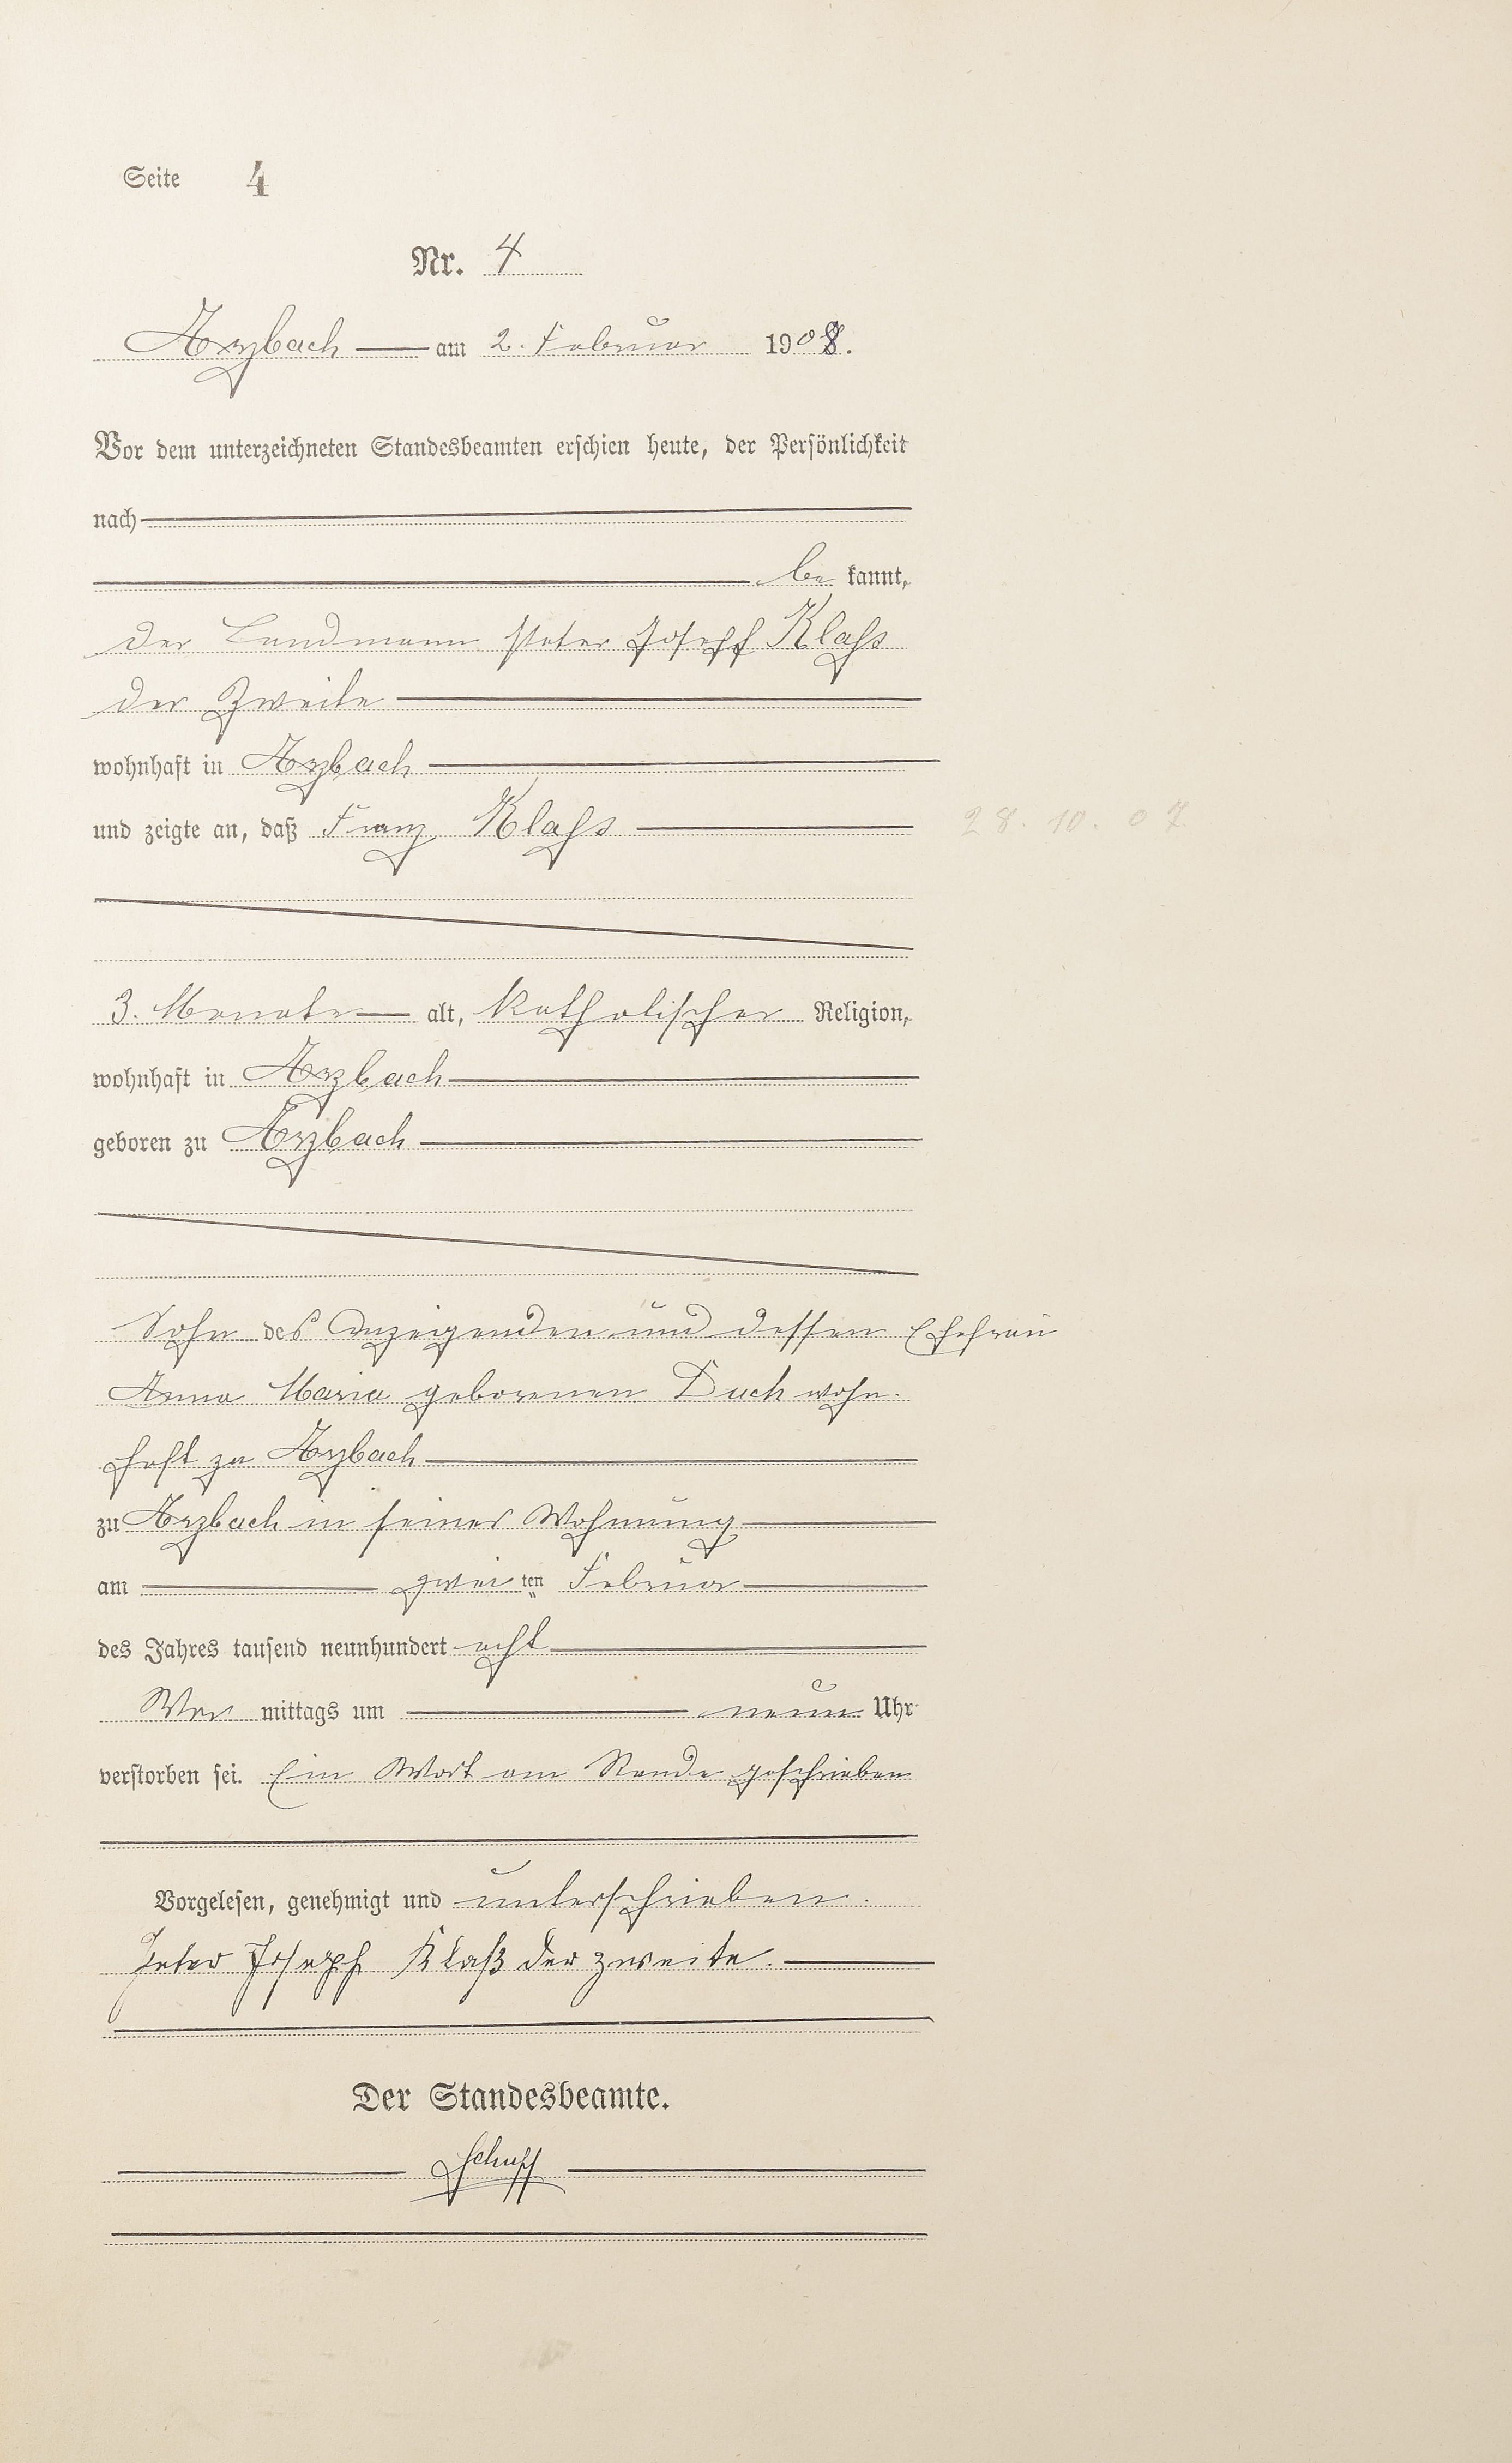 Seite 4
Nr. 4
Arzbach am 2. Februar 1908.
Vor dem unterzeichneten Standesbeamten erschien heute, der Persönlichkeit
nach
be kannt,
der Landmann Peter Joseph Klaß
der Zweite
wohnhaft in Arzbach
und zeigte an, daß Franz Klaß
28. 10. 07
3. Monate alt, katholischer Religion,
wohnhaft in Arzbach
geboren zu Arzbach
Sohn des Anzeigenden und dessen Ehefrau
Anna Maria geborenen Duch wohn-
haft zu Arzbach
zu Arzbach in seiner Wohnung
am zwei ten Februar
des Jahres tausend neunhundert acht
Vor mittags um neun Uhr
verstorben sei. Ein Wort am Rande geschrieben
Vorgelesen, genehmigt und unterschrieben.
Peter Joseph Klaß der zweite.
Der Standesbeamte.
Schupp